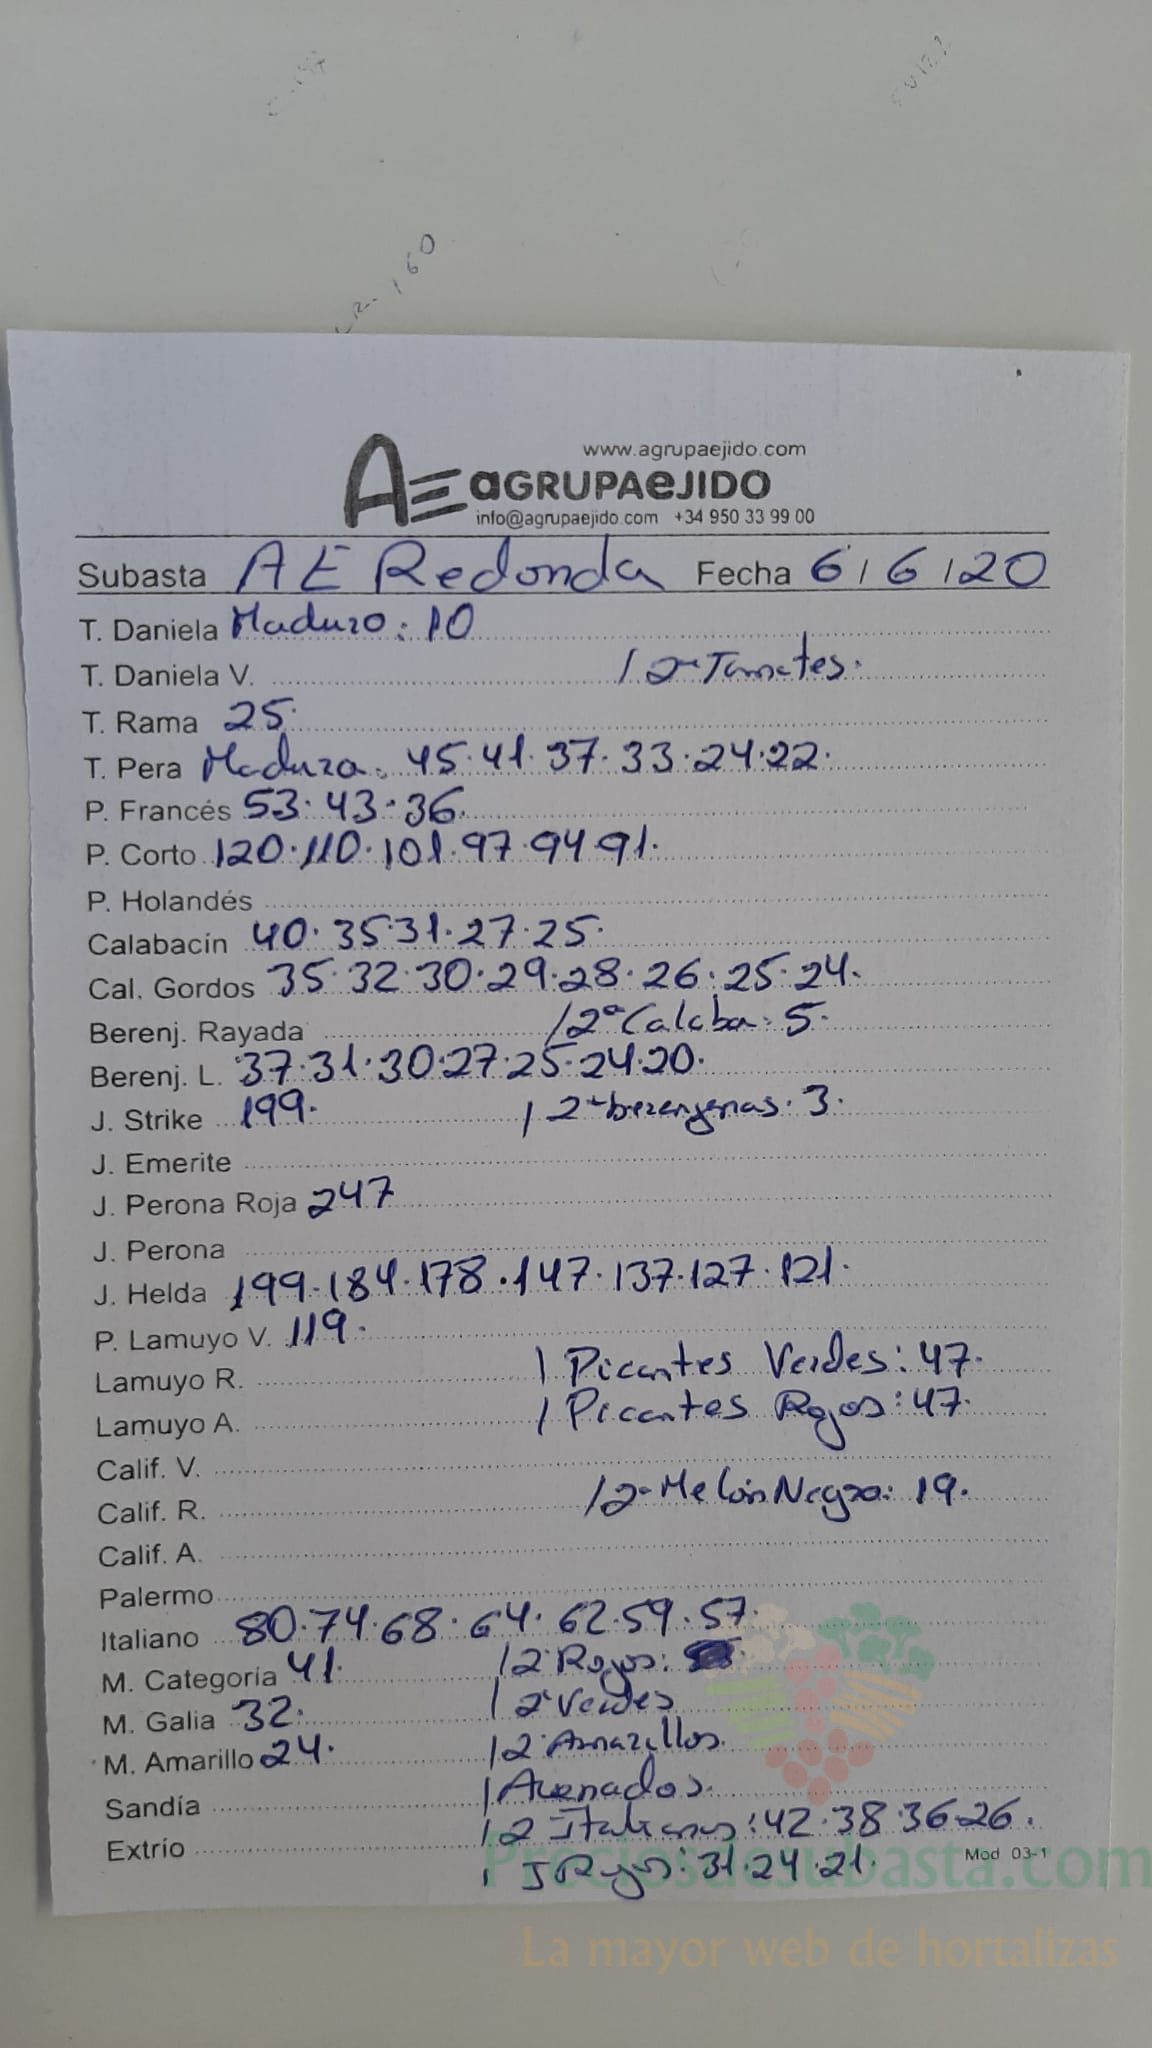 160
www.agrupaejido.com
AE aGRUPAeJIDO
info@agrupaejido.com +34 950 33 99 00
Subasta AE Redonda Fecha 6/6/20
T. Daniela Maduro: 10
T. Daniela V. / 2ª Tomates.
T. Rama 25.
T. Pera Madura. 45.41.37.33.24.22.
P. Francés 53.43.36.
P. Corto 120.110.101.97.94.91.
P. Holandés
Calabacín 40.35.31.27.25.
Cal. Gordos 35.32.30.29.28.26.25.24.
Berenj. Rayada / 2ª Calaba: 5.
Berenj. L. 37.31.30.27.25.24.20.
J. Strike 199. / 2ª berengenas. 3.
J. Emerite
J. Perona Roja 247
J. Perona
J. Helda 199.184.178.147.137.127.121.
P. Lamuyo V. 119.
Lamuyo R. / Picantes Verdes: 47.
Lamuyo A. / Picantes Rojos: 47.
Calif. V.
Calif. R. / 2ª Melón Negro: 19.
Calif. A.
Palermo
Italiano 80.74.68.64.62.59.57.
M. Categoría 41. / 2ª Rojos:
M. Galia 32. / 2ª Verdes
M. Amarillo 24. / 2ª Amarillos.
Sandía / Asenados.
Extrío / 2 Italianos: 42.38.36.26.
/ J Rojos: 31.24.21. Mod 03-1
Preciosdesubasta.com
La mayor web de hortalizas